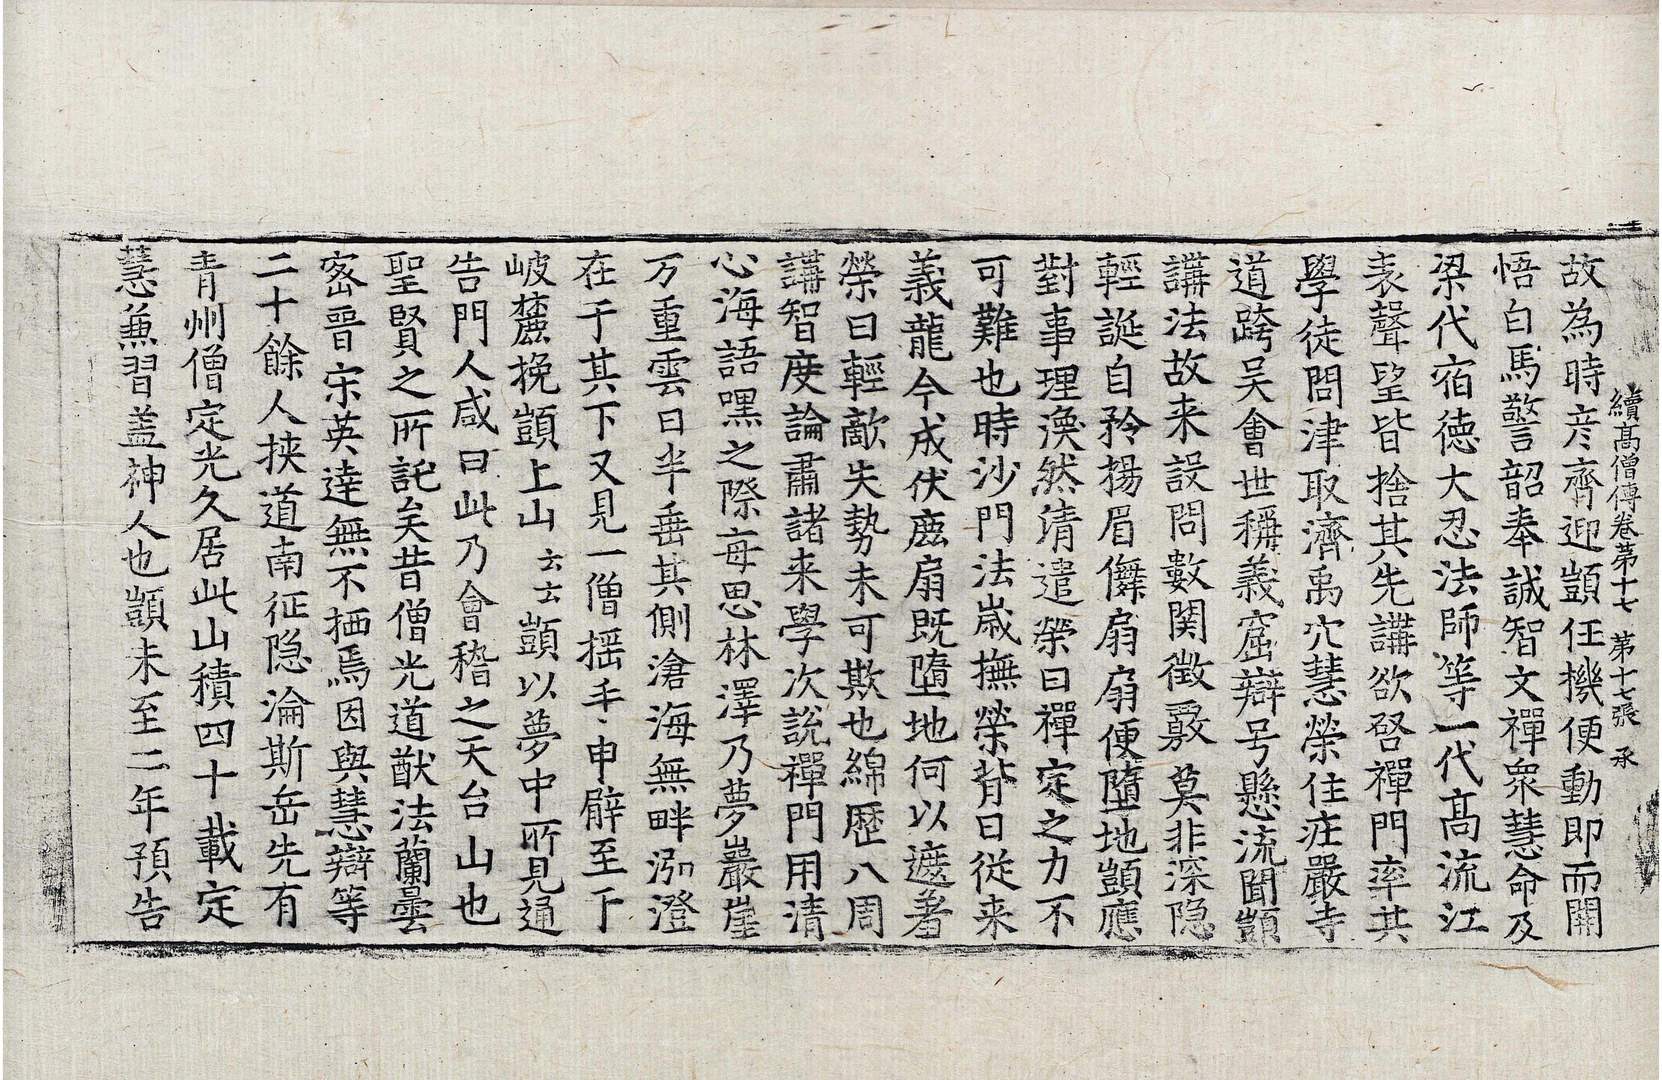 續高僧傳卷第十七 第十七張 承
故為時彦齊迎顗任機便動即而開
悟白馬警韶奉誠智文禪衆慧命及
梁代宿德大忍法師等一代髙流江
表聲望皆捨其先講欲啓禪門率其
學徒問津取濟禹穴慧榮住庄嚴寺
道跨吴會世稱義窟辯号懸流聞顗
講法故来設問數関徵覈莫非深隐
輕誕自矜揚眉儛扇扇便墮地顗應
對事理渙然清遣榮曰禪定之力不
可難也時沙門法歲撫榮背曰従来
義龍今成伏鹿扇既墮地何以遮著
榮曰輕敵失勢未可欺也綿歷八周
講智度論肅諸来學次說禪門用清
心海語嘿之際每思林澤乃夢巖崖
万重雲日半垂其側滄海無畔泓澄
在于其下又見一僧揺手申臂至于
岐麓挽顗上山云云顗以夢中所見通
告門人咸曰此乃會稽之天台山也
聖賢之所託矣昔僧光道猷法蘭曇
宻晋宋英逹無不栖焉因與慧辯等
二十餘人挟道南征隐淪斯岳先有
青州僧定光久居此山積四十載定
慧兼習盖神人也顗未至二年預告